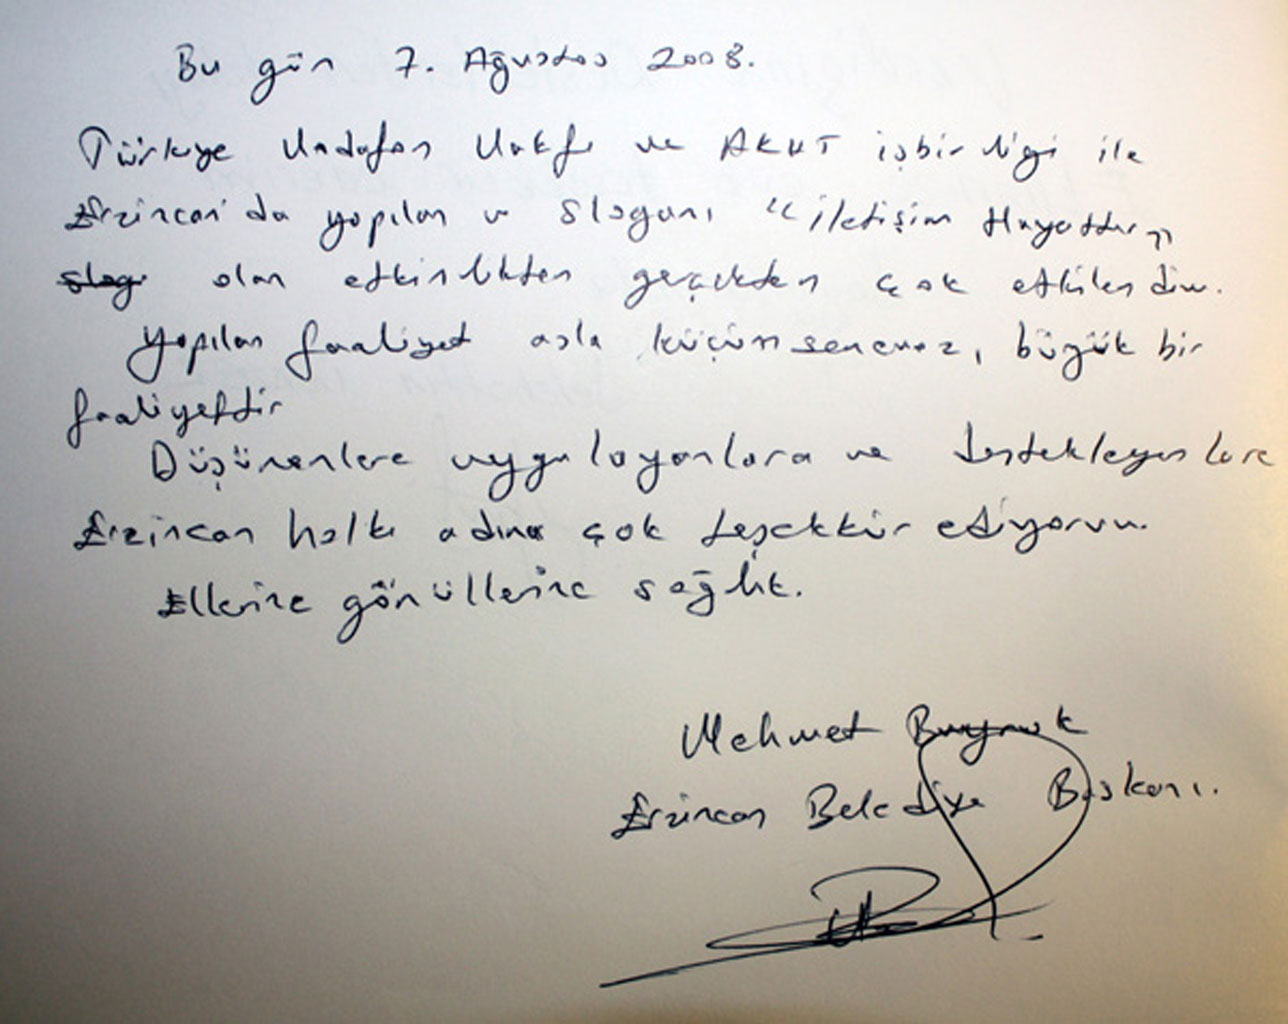 Bu gün 7. Ağustos 2008.
Türkiye Vodafon Vakfı ve AKUT işbirliği ile
Erzincan'da yapılan ve sloganı "iletişim Hayattır"
slog olan etkinlikten gerçekten çok etkilendim.
Yapılan faaliyet asla küçümsenemez, büyük bir
faaliyettir
Düşünenlere uygulayanlara ve destekleyenlere
Erzincan halkı adına çok teşekkür ediyorum.
Ellerine gönüllerine sağlık.
Mehmet Buyruk
Erzincan Belediye Başkanı.